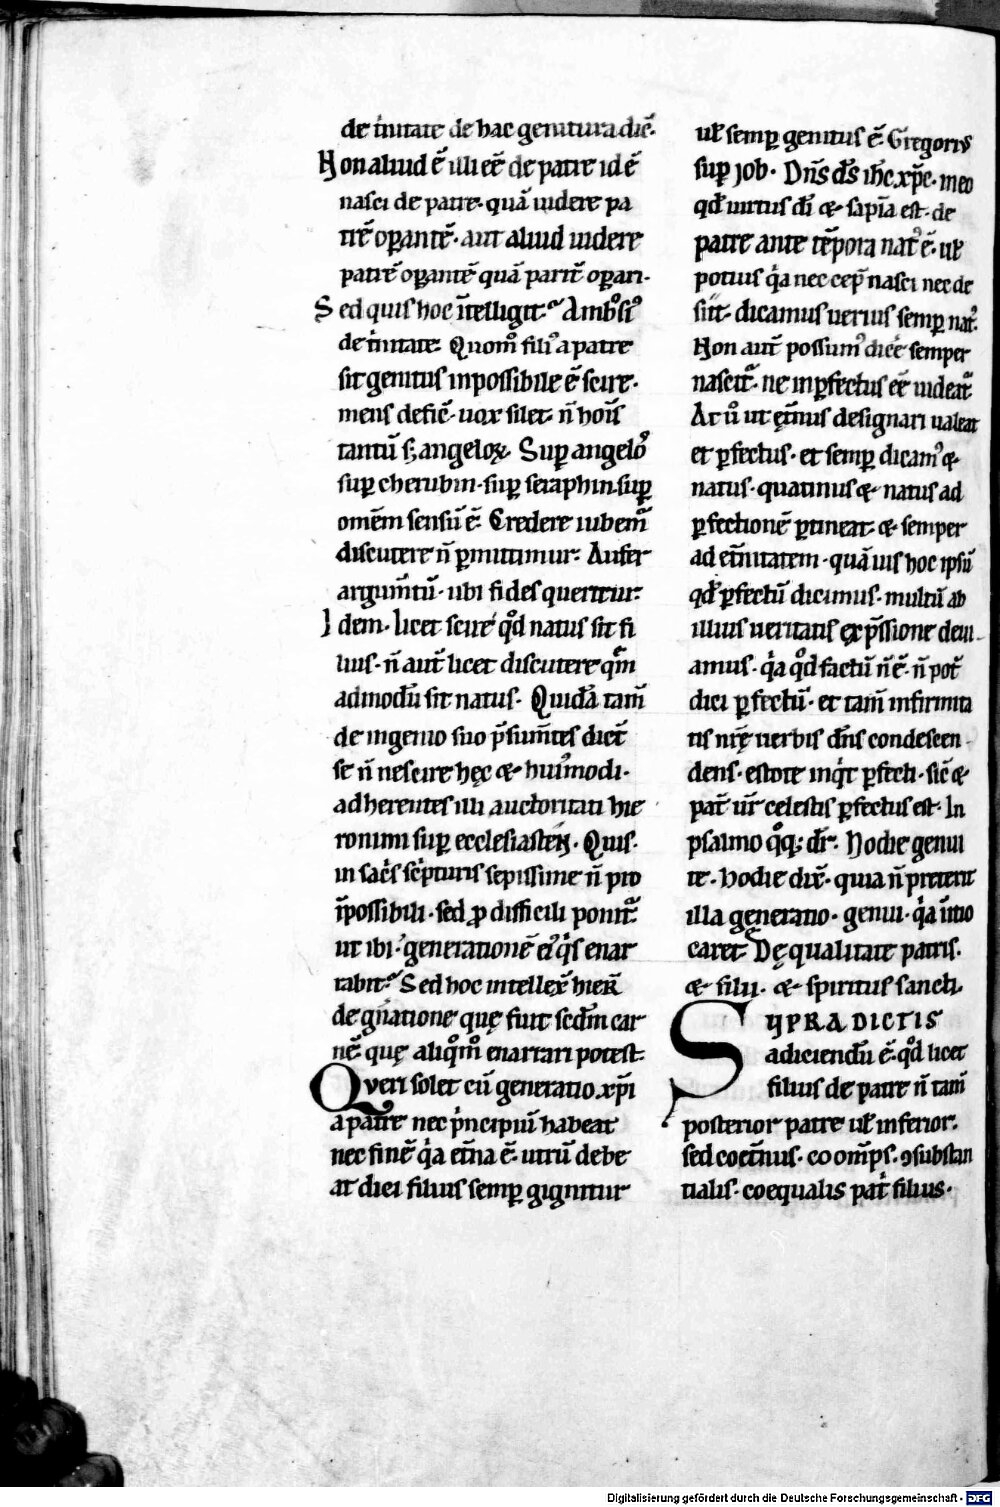 de t̄nitate de hac genitura dic̄.
Non aliud ē illi eē de patre id ē
nasci de patre. quā uidere pa
trē oꝑantē. aut aliud uidere
patrē oꝑantē quā parit̄ oꝑari.
Sed quis hoc ītelligit. Amb͛os͛iꝰ
de t̄nitate. Quom̊ filiꝰ a patre
sit genitus inpossibile ē scire.
mens defic̄. uox silet. n̄ hoīs
tantū s; angeloꝝ. Suꝑ angeloꝰ
suꝑ cherubin. suꝑ seraphin. suꝑ
omēm sensū ē. Credere iubem̄
discutere n̄ ꝑmittimur. Aufer
argum̄tū. ubi fides queritur.
Idem. licet scire qd̊ natus sit fi
lius. n̄ aut̄ licet discutere qm̄
admodū sit natus. Quidā tam̄
de ingenio suo p̄sum̄tes dict̄
se n̄ nescire hęc & huiꝰmodi.
adherentes illi auctoritati hie
ronimi suꝑ ecclesiasten. Quis.
in sac͛s sc͛pturis sepissime n̄ pro
īpossibili. sed ꝓ difficili ponit᷑
ut ibi. generationē eiꝰ qͥs enar
rabit. Sed hoc intellex̄ hier̄
de gn̄atione quę fuit scd̄m car
nē. quę aliqm̊ enarrari potest.
Queri solet cū generatio xp̄i
a patre nec pͥncipiū habeat
nec finē qͥa et̄na ē. utrū debe
at dici filius semꝑ gignitur
uł semꝑ genitus ē. Gregorius
suꝑ job. Dn̄s ds̄ ihc̄ xp̄c. in eo
qd̄ uirtus di̅ & sapīa est. de
patre ante tēpora natꝰ ē. uł
potius qͥa nec cep̄ nasci nec de
siit. dicamus uerius semꝑ natꝰ.
Non aut̄ possumꝰ dic͛e semper
nascit᷑. ne inꝑfectus eē uideat᷑.
At ů ut et̄nus designari ualeat
et ꝑfectus. et semꝑ dicamꝰ &
natus. quatinus & natus ad
ꝑfectionē ꝑtineat. & semper
ad et̄nitatem. quāuis hoc ipsū
qd̄ ꝑfectū dicimus. multū ab
illius ueritatis exp̄ssione deui-
amus. qͥa qd̊ factū n̄ ē. n̄ pot̄
dici ꝑfectū. et tam̄ infirmita
tis nr̄ę uerbis dn̄s condescen
dens. estote inqͥt ꝑfecti. sic̄ &
pat̄ ur̄ celestis ꝑfectus est. In
psalmo qͦq; dr̄. Hodie genui
te. hodie dix̄. quia n̄ preterit
illa generatio. genui. qͥa initio
caret. De qualitate patris.
& filii. & spiritus sancti.
SUPRADICTIS
adiciendū ē. qd̊ licet
filius de patre n̄ tam̄
posterior patre uł inferior.
sed coet̄nus. co omp̄s. ꝯsubstan
tialis. coequalis pat͛ filius.
Digitalisierung gefördert durch die Deutsche Forschungsgemeinschaft - DFG